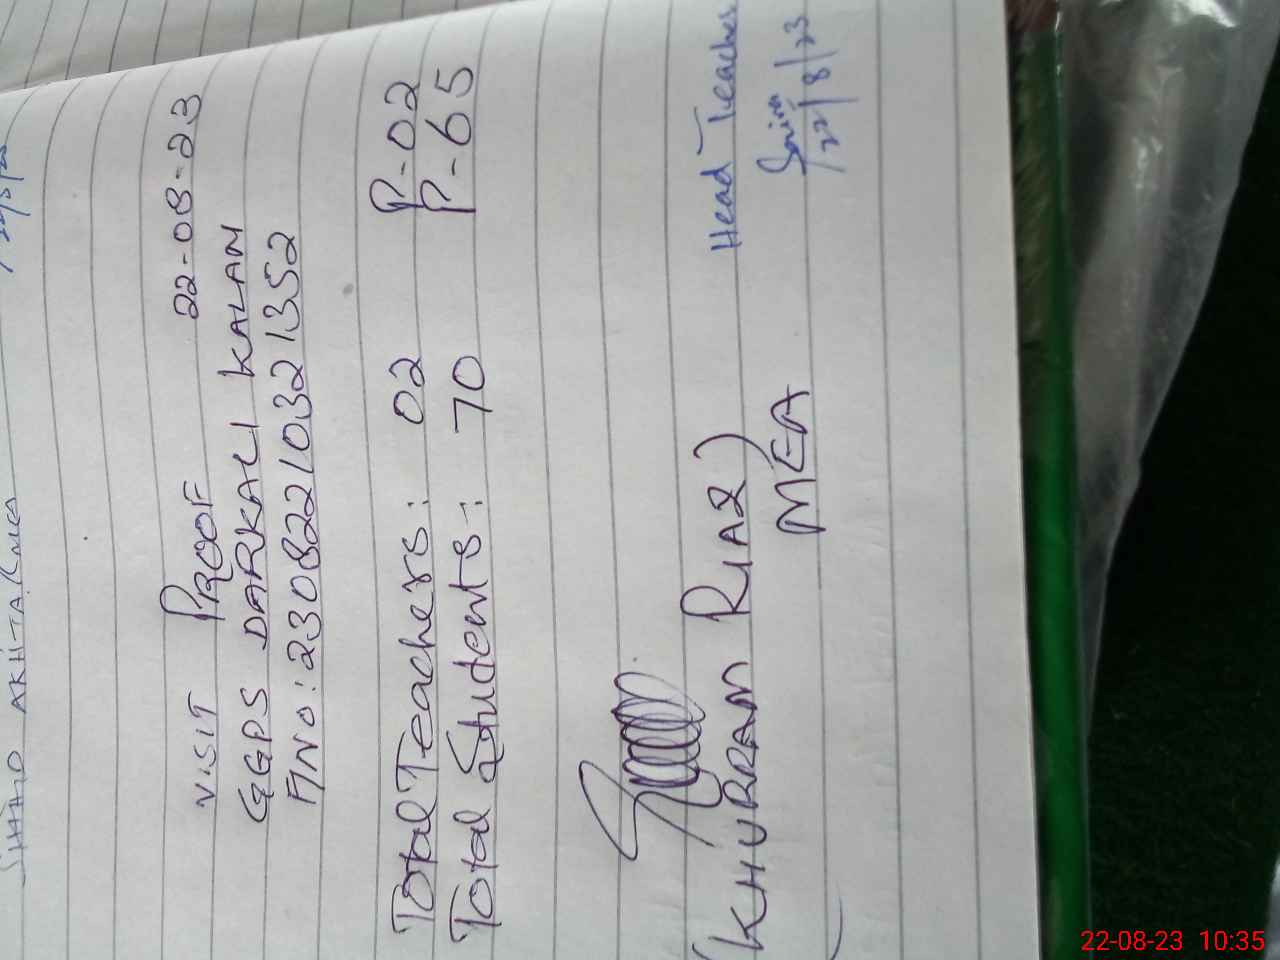 AKHTAR
VISIT PROOF 22-08-23
GGPS DARKALI KALAN
F/NO: 23082210321352
Total Teachers: 02 P-02
Total Students: 70 P-65
(KHURRAM RIAZ)
MEA
Head Teacher
22/8/23
22-08-23 10:35